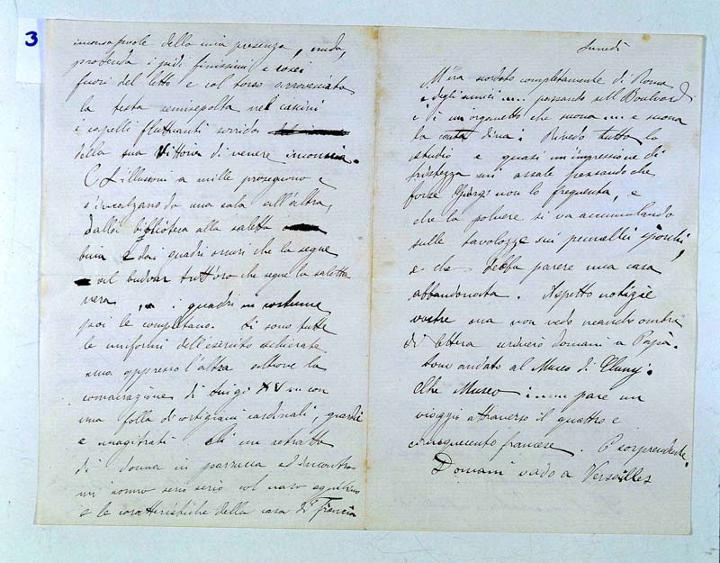 3
inconsapevole della mia presenza, nuda,
protenda i piedi finissimi e rosei
fuori del letto e col torso arrovesciato
la testa semisepolta nel cuscini
i capelli fluttuanti sorrida
della sua vittoria di venere
L'illusioni a mille proseguono e
s'incalzano da una sala all'altra,
dalla biblioteca alla saletta
buia e da quadri oscuri che la segue
al budoir tutt'oro che segue la saletta
nera i quadri in costume
poi le completano. Li sono tutte
le uniformi dell'esercito schierate
una appresso l'altra
di Luigi XV con
una folla di cortigiani cardinali, guardie
e magistrati un ritratto
di donna in parrucca ed incontro
un uomo serio serio col naso aquilino
e le caratteristiche della casa di Francia
Lunedì
M'era scordato completamente di Roma
e degli amici .... passando sul Boulevard
c'è un organetto che suona ... e suona
la Rivedo tutto lo
studio e quasi un'impressione di
tristezza mi assale pensando che
forse Giorgi non lo frequenta, e
che la polvere si va accumulando
sulle tavolozze sui pennelli sporchi,
e che debba parere una casa
abbandonata. Aspetto notizie
vostre ma non vedo neanche ombra
di lettera scriverò domani a Papà.
Sono andato al Museo di Cluny.
Che Museo pare un
viaggio attraverso il quattro e
cinquecento francese. È sorprendente.
Domani vado a Versailles